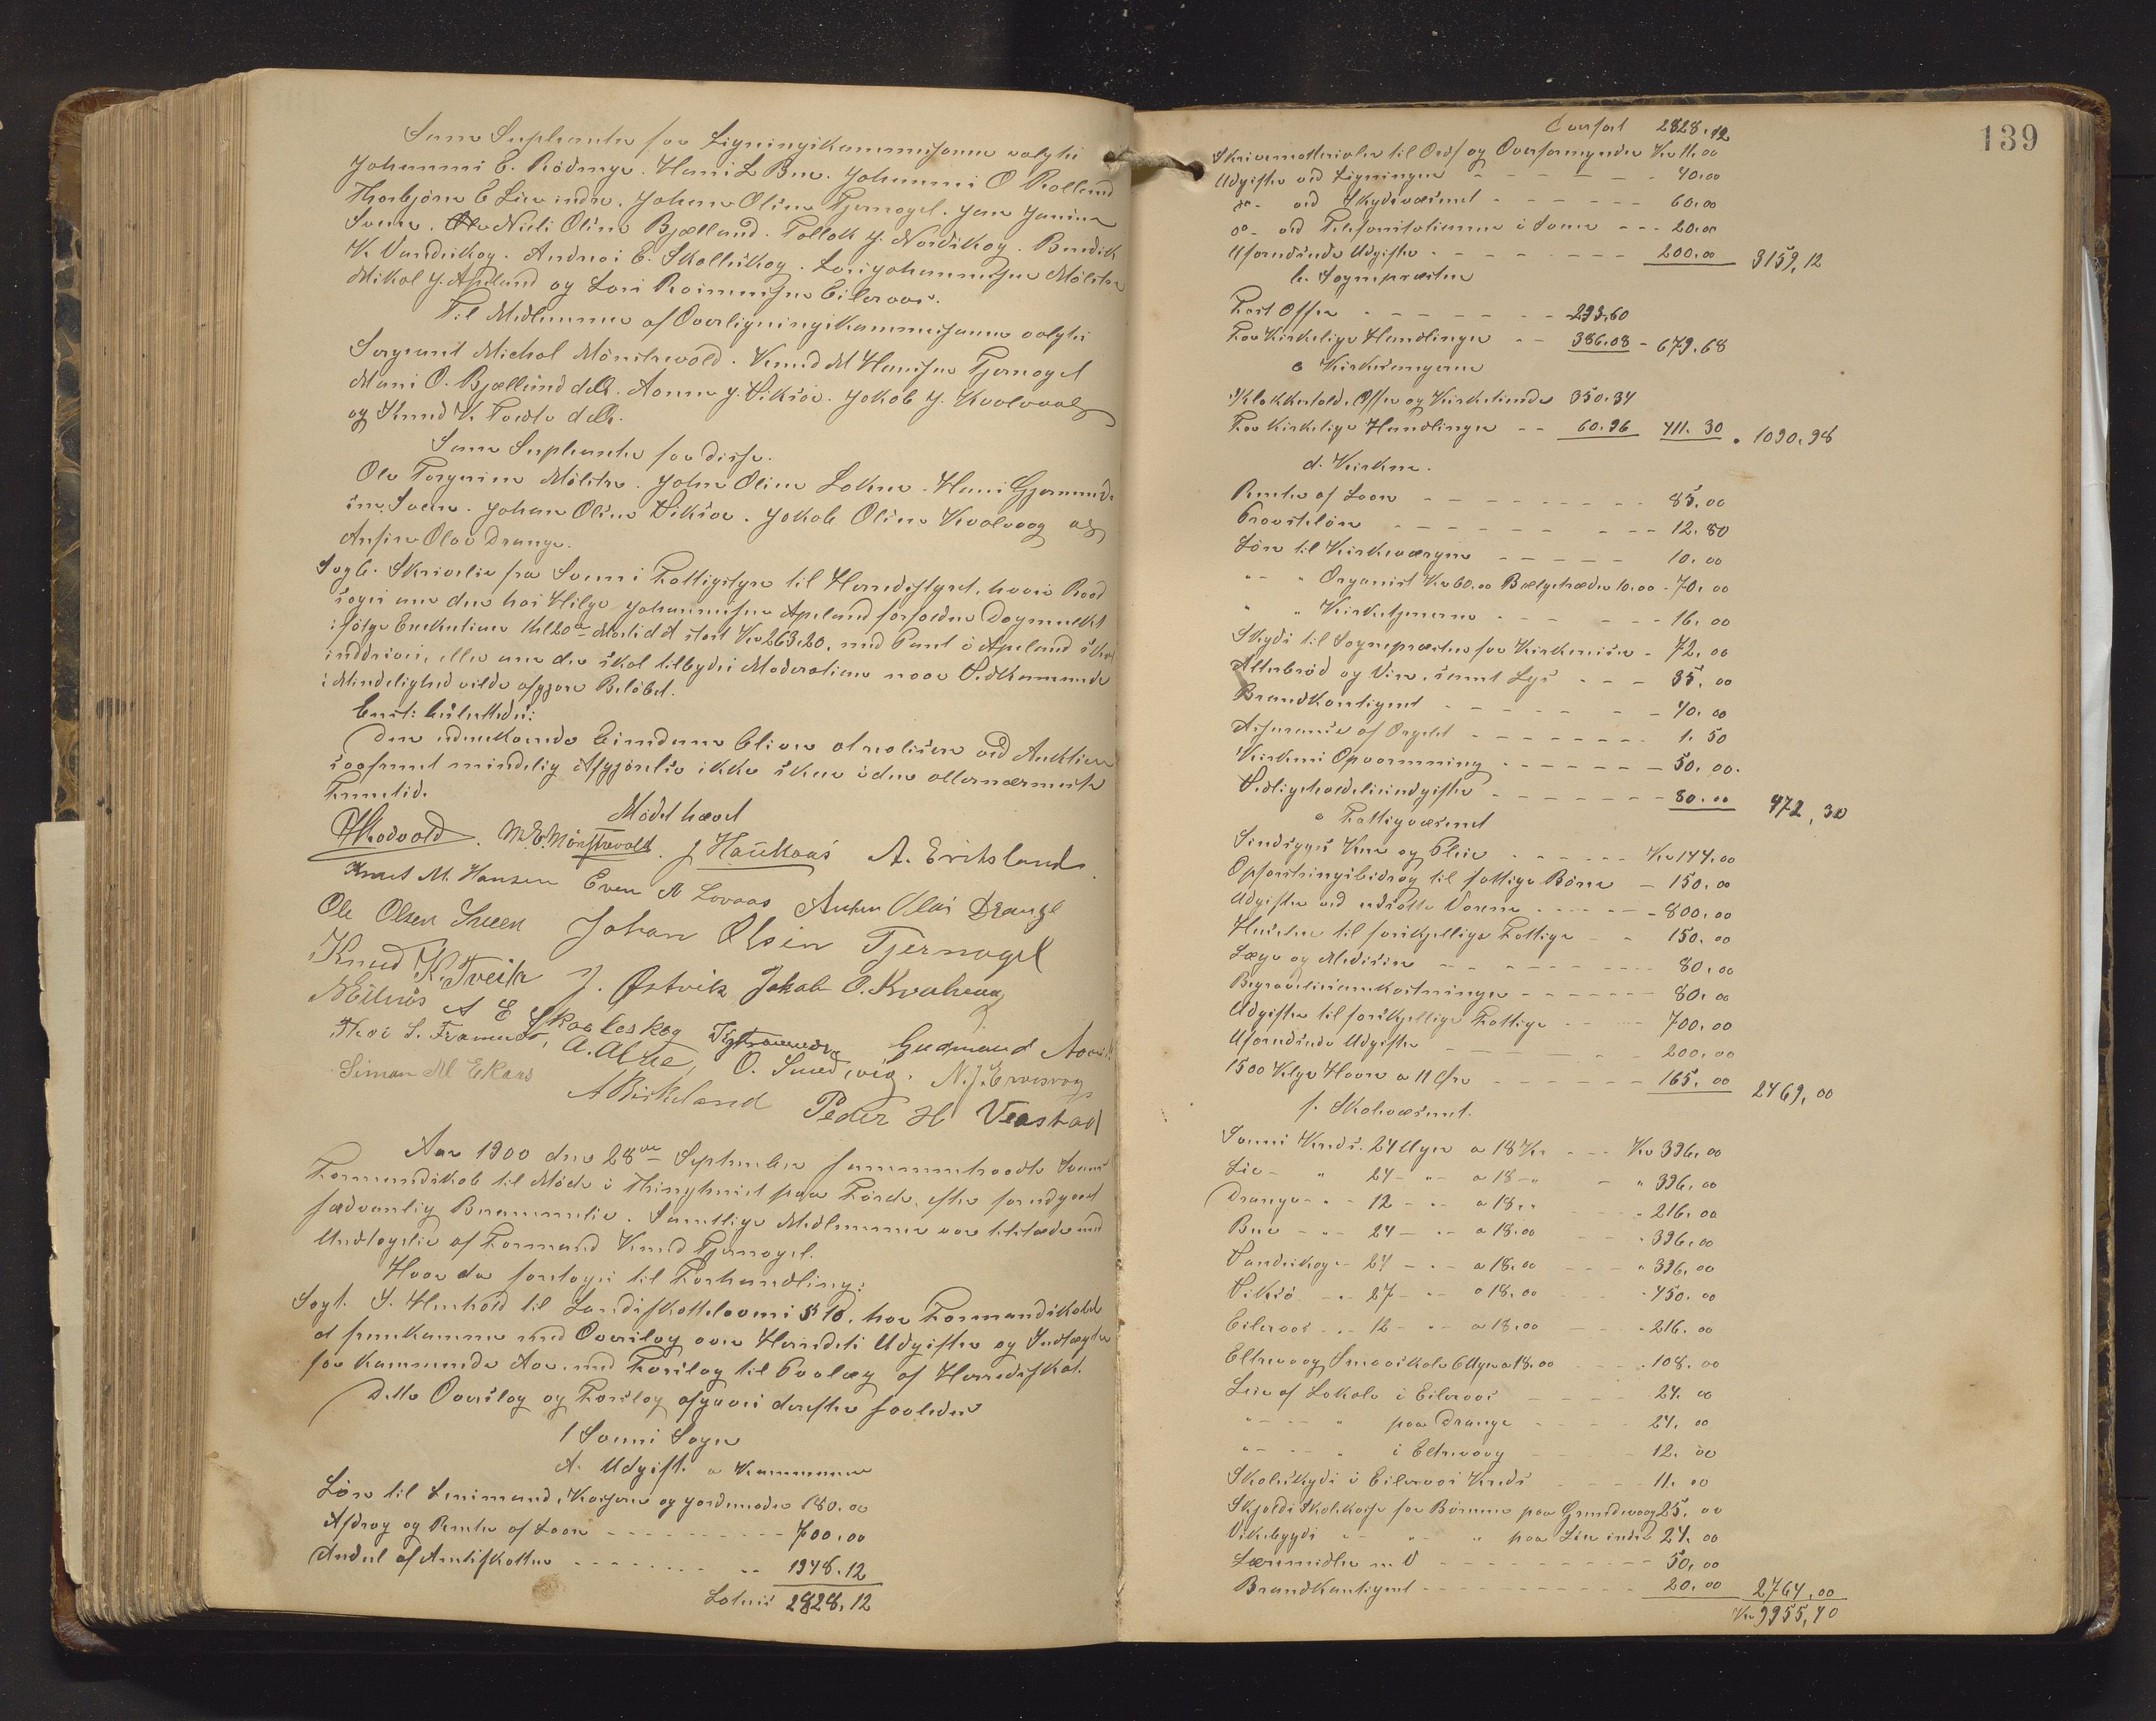 Som Suplanter for Ligningskommisjonen valgtes
Johannes E. Rødinge. Hans L Bue. Johannes O Rolland
Thorbjørn E Lie indre. Johan Olsen Tjernagel. Jan Jansen
Sveen. Nils Olsen Bjelland. Tollak J. Nordskog. Bendik
K. Vandskog. Andreas E. Skolleskog. Lars Johannesen Mølster
Mikal J. Apeland og Lars Rasmussen Eileraas.
Til Medlemmer af Overligningskommisjonen valgtes
Sergeant Michal Mønstrevold. Knud M Hansen Tjernagel
Mons O. Bjelland d.Æ. Aamun J. Viksøe. Jakob J. Kvalvaag
og Knud K. Tveite d.Æ.
Som Suplanter for disse.
Ole Torgersen Mølster. John Olsen Løkene. Hans Gjermunds
sen Sveen. Johan Olsen Viksøe. Jakob Olsen Kvalvaag og
Anfin Olai Drange.
Sag 6. Skrivelse fra Sveens Fattigstyre til Herredsstyret, hvori Raad
søges om den hos Helge Johannesen Apeland forfaldne Dagmulkt
ifølge Exekution Kl 20de Marts d A stort Kr 263.20, med Pant i Apeland skal
inddrives, eller om der skal tilbydes Moderation naar Vedkommende
i Mindelighed vilde afgjøre Beløbet.
Enst: besluttedes:
Den udpantede Eiendom bliver at realisere ved Auktion
saafremt mindelig Afgjørelse ikke sker i den allernærmeste
Fremtid.
Mødet hævet
HRodvold. M.E. Mønstrevold. J Haukaas A. Eriksland
Knut M. Hansen Even N Lovaas Anfin Olai Drange
Ole Olsen Sveen Johan Olsen Tjernagel
Knud K. Tveit J. Østvik Jakob O. Kvalvaag
N Eilerås A E Skoleskog Gudmund
Thos S. Framnes, A. Alsse, O. Smedsvig. N. J. Ervesvag
Simon M Ekaas A Birkeland Peder H Veastad
Aar 1900 den 28de September sammentraadte Sveens
Formandskab til Møde i Thinghuset paa Førde, efter forudgaaet
sædvanlig Berammelse. Samtlige Medlemmer var tilstede med
Undtagelse af Formand Knud Tjernagel.
Hvor da foretoges til Forhandling:
Sag 1. I Henhold til Landsskattelovens § 10, har Formandskabet
at fremkomme med Overslag over Herredets Udgifter og Indtægter
for kommende Aar, med Forslag til Paalæg af Herredsskat.
Dette Overslag og Forslag afgaves derefter saaledes
1 Sveens Sogn
A. Udgift. a Kommunen
Løn til Lensmand, Kasserer og Jordmoder 180.00
Afdrag og Renter af Laan - - - 700.00
Andel af Amtsskatten - - - 1948.12
Lateris 2828.12
139
Overført 2828.12
Skrivematerialer til Ordf og Overformynder Kr 11.00
Udgifter ved Ligningen - - - 40.00
do - ved Skydsvæsenet - - - 60.00
do - ved Telefonstationen i Sveen - - - 20.00
Uforudseede Udgifter - - - 200.00 3159,12
b. Sognepræsten
Fast Offer - - - 293.60
For Kirkelige Handlinger - - 386.08 - 679.68
c Kirkesangeren
Klokkertold, Offer og Kirketiende 350.34
For Kirkelige Handlinger - - 60.96 411.30 . 1090.98
d. Kirken.
Renter af Laan - - - 85.00
Provsteløn - - - 12.80
Løn til Kirkeværgen - - - 10.00
" - " Organist Kr 60.00 Bælgetræder 10.00 - 70.00
" " Kirketjeneren - - - 16.00
Skyds til Sognepræsten for Kirkereiser - 72.00
Alterbrød og Vin, samt Lys - - - 35.00
Brandkontigent - - - 40.00
Assurance af Orgelet - - - 1.50
Kirkens Opvarmning - - - 50.00.
Vedligeholdelsesudgifter - - - 80.00 472,30
e Fattigvæsenet
Sindsyges Kur og Pleie - - - Kr 144.00
Opfostringsbidrag til fattige Børn - 150.00
Udgifter ved udsatte Voxne - - - 800.00
Husleie til forskjellige Fattige - - 150.00
Læge og Medisin - - - 80.00
Begravelsesomkostninger - - - 80.00
Udgifter til forskjellige Fattige - - 700.00
Uforudseede Udgifter - - - 200.00
1500 Kilgr Havre a 11 Øre - - - 165.00 2469,00
f. Skolevæsenet.
Sveens Kreds. 24 Uger a 18 Kr - - - Kr 396.00
Lie - " 24 - " - a 18 - " - " 396.00
Drange - - 12 - - a 18 " - " 216.00
Bue - - 24 - - a 18.00 - - " 396.00
Vandskog - - 24 - - a 18.00 - - - " 396.00
Viksø - - 27 - - a 18.00 - 450.00
Eileraas - - 12 - - a 18.00 - - 216.00
Eltravaag Smaaskole 6 Uger a 18.00 - - - 108.00
Leie af Lokale i Eileraas - - - 24.00
" - - - " paa Drange - - - 24.00
" - - - " i Eltravaag - - 12.00
Skoleskyds i Eileraas Kreds - - - 11.00
Skjolds Skolekasse for Børnene paa Grindevaag 25.00
Vikebygds " - " - " paa Lie indre 24.00
Læremidler m. V - - - 50.00
Brandkontigent - - - 20.00 2764.00
Kr 9955,40